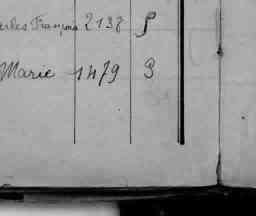 arles François 2138 P
Marie 1479 3